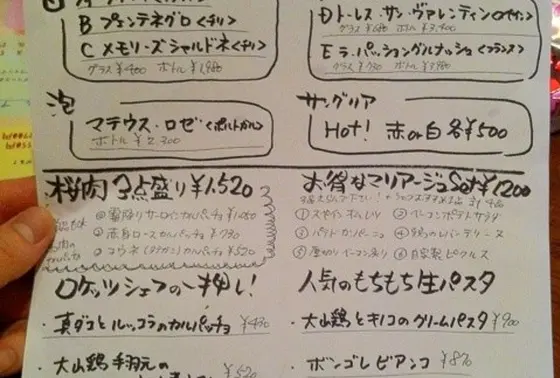 B プェンテネグロ <チリ>
C メモリーズシャルドネ <チリ>
グラス ¥400 ボトル ¥1,980
D トーレス・サン・ヴァレンティン
グラス ¥680 ボトル ¥3,400
E ラ・パッショングルナッシュ <フランス>
グラス ¥730 ボトル ¥3,980
泡
マテウス・ロゼ <ポルトガル>
ボトル ¥2,300
サングリア
Hot! 赤or白 各¥500
桜肉 3点盛り ¥1,520
霜降りサーロインカルパッチョ ¥1,050
赤身ロースカルパッチョ ¥730
コウネ(タテガミ)カルパッチョ ¥520
お得なマリアージュSet ¥1200
① スペインオムレツ ② ベーコンポテトサラダ
③ パテドカンパーニュ ④ 鶏のレバテリーヌ
⑤ 厚切りベーコン炙り ⑥ 自家製ピクルス
ロケッツシェフの一押し!
・真ダコとルッコラのカルパッチョ ¥430
・大山鶏 手羽元の
¥520
人気のもちもち生パスタ
・大山鶏とキノコのクリームパスタ ¥900
・ボンゴレビアンコ